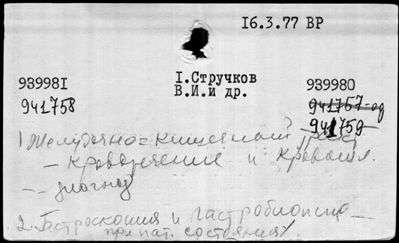 16.3.77 ВР
I.Стручков
В.И.и др.
939981
939980
941758
941757-од
941759
1 Желудочно-кишечный
– кровотечение и
– диагноз
2. Гастроскопия и гастробиопсия –
при пат. состояниях